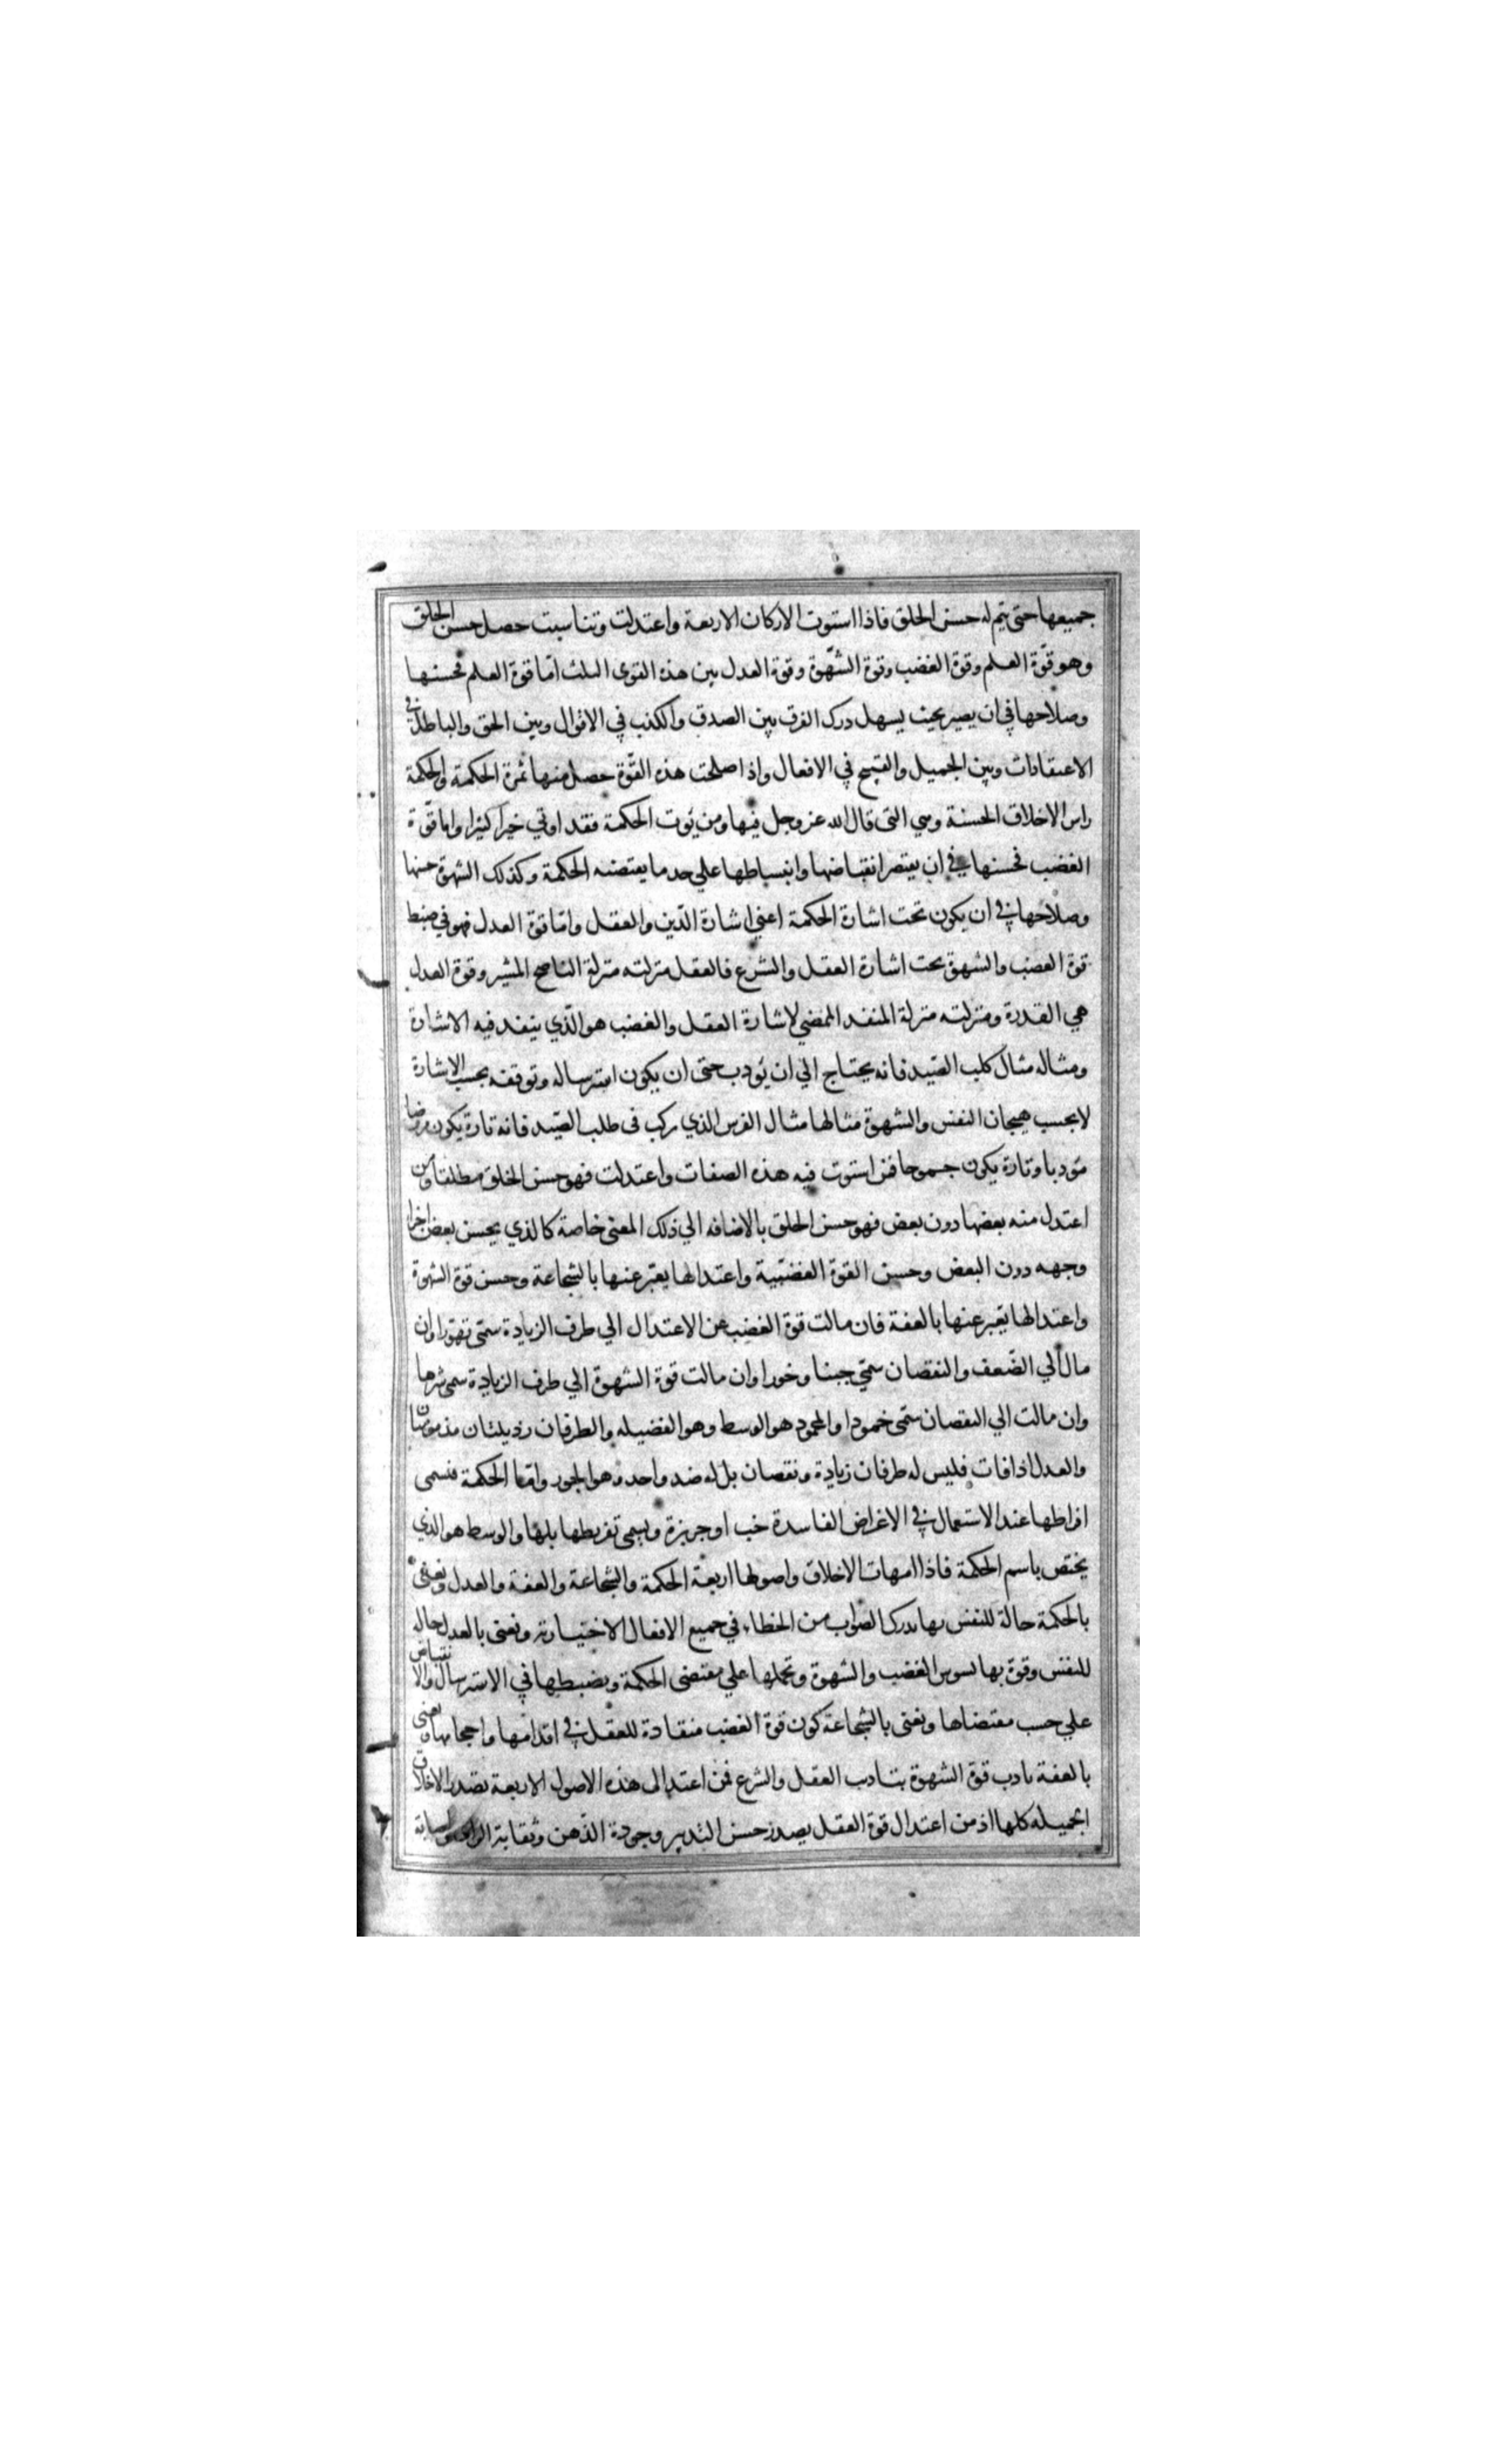 جميعها حتى يتم له حسن الخلق فاذا استوت الاركان الاربعة واعتدلت وتناسبت حصل حسن الخلق
وهو قوّة العلم وقوة الغضب وقوة الشّهوة وقوة العدل بين هذه القوى الثلث امّا قوة العلم فحسنها
وصلاحها في ان يصير بحيث يسهل درك الفرق بين الصدق والكذب في الاقوال وبين الحق والباطل في
الاعتقادات وبين الجميل والقبيح في الافعال واذا صلحت هذه القوّة حصل منها ثمرة الحكمة والحكمة
راس الاخلاق الحسنة وهي التى قال الله عز وجل فيها ومن يؤت الحكمة فقد اوتي خيرا كثيرا واما قوّة
الغضب فحسنها في ان يقتصر انقباضها وانبساطها علي حد ما يقتضيه الحكمة وكذلك الشهوة حسنها
وصلاحها في ان يكون تحت اشارة الحكمة اعني اشارة الدّين والعقل وامّا قوة العدل فهو في ضبط
قوة الغضب والشهوة تحت اشارة العقل والشرع فالعقل منزلته منزلة الناصح المشير وقوة العدل
هي القدرة ومنزلته منزلة المنفذ الممضي لاشارة العقل والغضب هو الّذي ينفذ فيه الاشارة
ومثاله مثال كلب الصّيد فانه يحتاج الي ان يؤدب حتى ان يكون استرساله وتوقفه بحسب الاشارة
لا بحسب هيجان النفس والشهوة مثالها مثال الفرس الذي يركب فى طلب الصّيد فانه تارة يكون مروضا
مؤدبا وتارة يكون جموحا فمن استوت فيه هذه الصفات واعتدلت فهو حسن الخلق مطلقا ومن
اعتدل منه بعضها دون بعض فهو حسن الخلق بالاضافه الي ذلك المعنى خاصة كالذي يحسن بعض اجزا
وجهه دون البعض وحسن القوة الغضبّية واعتدالها يعبّر عنها بالشجاعة وحسن قوة الشهوة
واعتدالها يعبر عنها بالعفة فان مالت قوة الغضب عن الاعتدال الي طرف الزيادة سمّى تهوّرا وان
مال الي الضّعف والنقصان سمّي جبنا وخورا وان مالت قوة الشهوة الي طرف الزيادة سمى شرها
وان مالت الي النقصان سمّى خمودا والمحمود هو الوسط وهو الفضيله والطرفان رذيلتان مذمومتان
والعدل اذا فات فليس له طرفان زيادة ونقصان بل له ضد واحد وهو الجور وامّا الحكمة فسمى
افراطها عند الاستعمال في الاغراض الفاسدة خبا وجربزة ويسمى تفريطها بلها والوسط هو الذي
يختص باسم الحكمة فاذا امهات الاخلاق واصولها اربعة الحكمة والشجاعة والعفة والعدل ونعنى
بالحكمة حالة للنفس بها يدرك الصواب من الخطاء في جميع الافعال الاختيارية ونعنى بالعدل حاله
للنفس وقوة بها يسوس الغضب والشهوة وتحملها علي مقتضى الحكمة ويضبطها في الاسترسال والانقباض
علي حسب مقتضاها ونعنى بالشجاعة كون قوة الغضب منقادة للعقل في اقدامها واحجامها ونعنى
بالعفة تادب قوة الشهوة بتادب العقل والشرع فمن اعتدال هذه الاصول الاربعة تصدر الاخلاق
الجميله كلها اذ من اعتدال قوة العقل يصدر حسن التدبير وجودة الذّهن وثقابة الراى